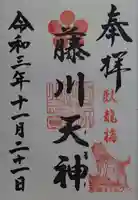 奉拝
臥龍梅
藤川天神
令和三年十一月二十一日